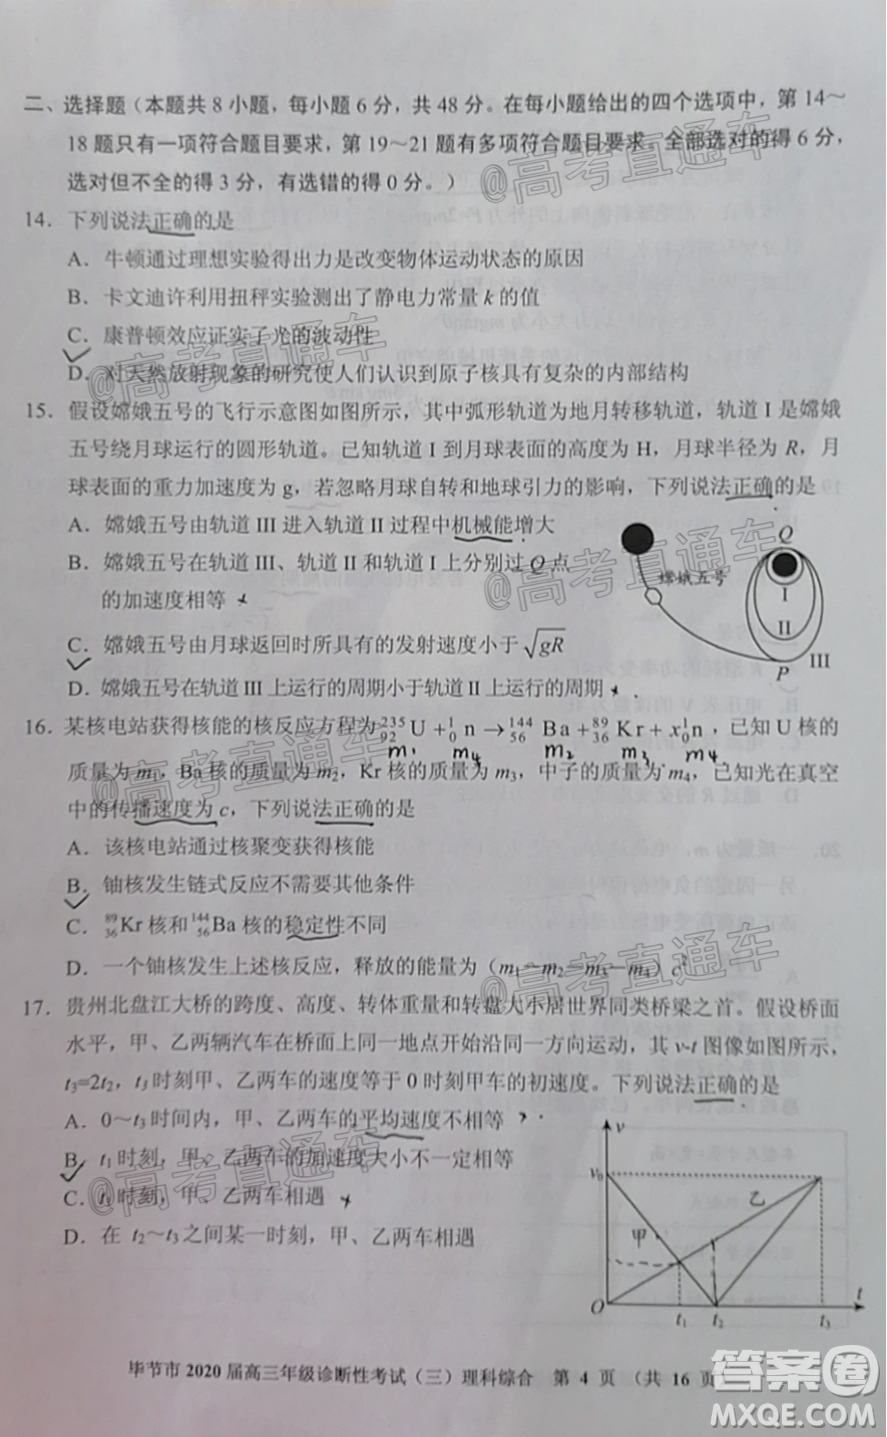 二、选择题（本题共 8 小题，每小题 6 分，共 48 分。在每小题给出的四个选项中，第 14～
18 题只有一项符合题目要求，第 19～21 题有多项符合题目要求。全部选对的得 6 分，
选对但不全的得 3 分，有选错的得 0 分。）
@高考直通车
14．下列说法正确的是
A．牛顿通过理想实验得出力是改变物体运动状态的原因
B．卡文迪许利用扭秤实验测出了静电力常量 k 的值
C．康普顿效应证实了光的波动性
D．对天然放射现象的研究使人们认识到原子核具有复杂的内部结构
@高考直通车
15．假设嫦娥五号的飞行示意图如图所示，其中弧形轨道为地月转移轨道，轨道 I 是嫦娥
五号绕月球运行的圆形轨道。已知轨道 I 到月球表面的高度为 H，月球半径为 R，月
球表面的重力加速度为 g，若忽略月球自转和地球引力的影响，下列说法正确的是
A．嫦娥五号由轨道 III 进入轨道 II 过程中机械能增大
B．嫦娥五号在轨道 III、轨道 II 和轨道 I 上分别过 Q 点
的加速度相等
C．嫦娥五号由月球返回时所具有的发射速度小于 √gR
D．嫦娥五号在轨道 III 上运行的周期小于轨道 II 上运行的周期
Q
嫦娥五号
I
II
III
P
@高考直通车
16．某核电站获得核能的核反应方程为 ²³⁵₉₂U + ¹₀n → ¹⁴⁴₅₆Ba + ⁸⁹₃₆Kr + x¹₀n，已知 U 核的
m₁ m₄ m₂ m₃ m₄
质量为 m₁，Ba 核的质量为 m₂，Kr 核的质量为 m₃，中子的质量为 m₄，已知光在真空
中的传播速度为 c，下列说法正确的是
A．该核电站通过核聚变获得核能
B．铀核发生链式反应不需要其他条件
C．⁸⁹₃₆Kr 核和 ¹⁴⁴₅₆Ba 核的稳定性不同
D．一个铀核发生上述核反应，释放的能量为（m₁－m₂－m₃－m₄）c²
@高考直通车
@高考直通车
17．贵州北盘江大桥的跨度、高度、转体重量和转盘大小居世界同类桥梁之首。假设桥面
水平，甲、乙两辆汽车在桥面上同一地点开始沿同一方向运动，其 v-t 图像如图所示，
t₃=2t₂，t₃ 时刻甲、乙两车的速度等于 0 时刻甲车的初速度。下列说法正确的是
A．0～t₃ 时间内，甲、乙两车的平均速度不相等
B．t₁ 时刻，甲、乙两车的加速度大小不一定相等
C．t₁ 时刻，甲、乙两车相遇
D．在 t₂～t₃ 之间某一时刻，甲、乙两车相遇
@高考直通车
v
v₀
乙
甲
O
t₁
t₂
t₃
t
毕节市 2020 届高三年级诊断性考试（三）理科综合 第 4 页 （共 16 页
答案圈
MXQE.COM